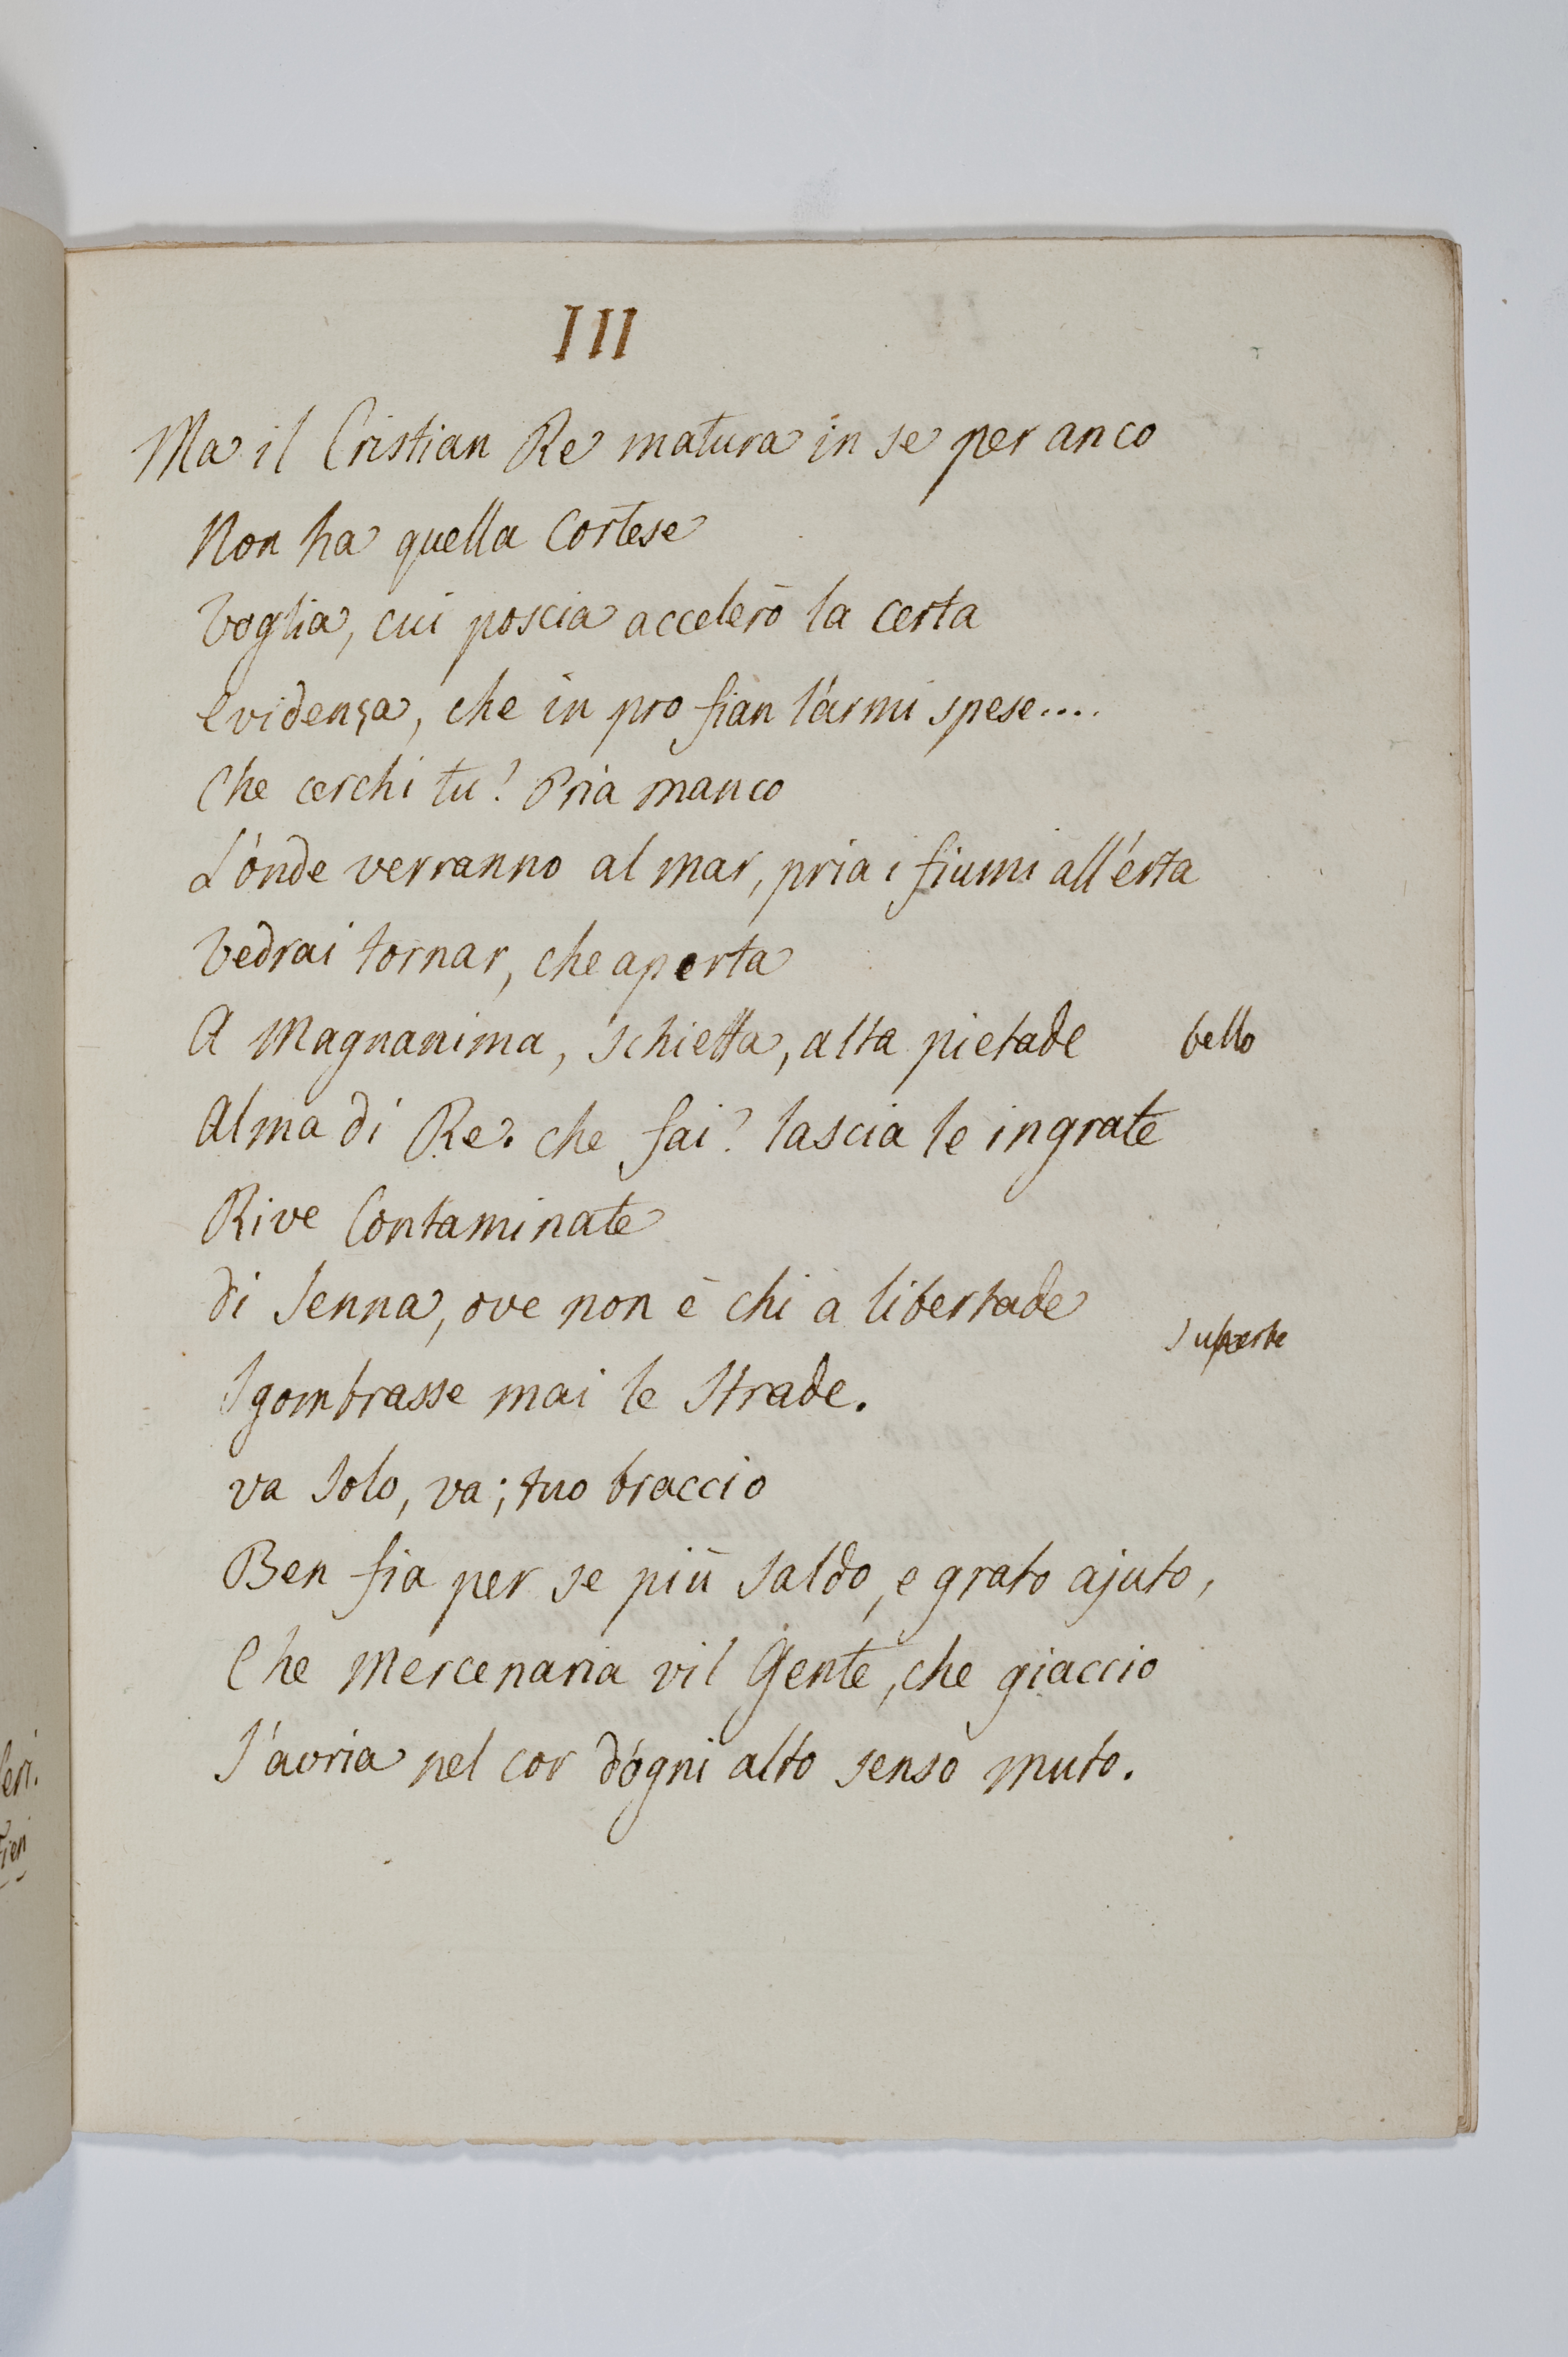 III
Ma il Cristian Re matura in se per anco
Non ha quella Cortese
Voglia, cui poscia accelerò la certa
Evidenza, che in pro fian l'armi spese....
Che cerchi tu? Pria manco
L'onde verranno al mar, pria i fiumi all'erta
Vedrai tornar, che aperta
A Magnanima, schietta, alta pietade bello
Alma di Re. che fai? lascia le ingrate
Rive Contaminate
di Senna, ove non è chi a libertade
superbe
Sgombrasse mai le Strade.
va Solo, va; tuo braccio
Ben fia per se più Saldo, e grato ajuto,
Che Mercenaria vil Gente, che giaccio
S'avria nel cor d'ogni alto senso muto.